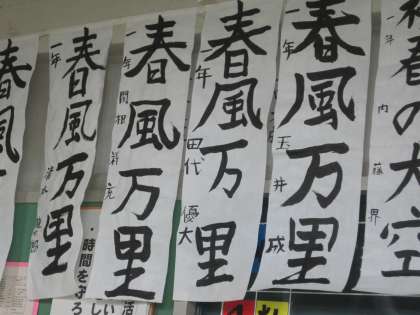 春の大空
一年 内藤 界
春風万里
年 玉井 成
春風万里
一年 田代 優大
春風万里
一年
春風万里
一年
春風
・時間を守ろ